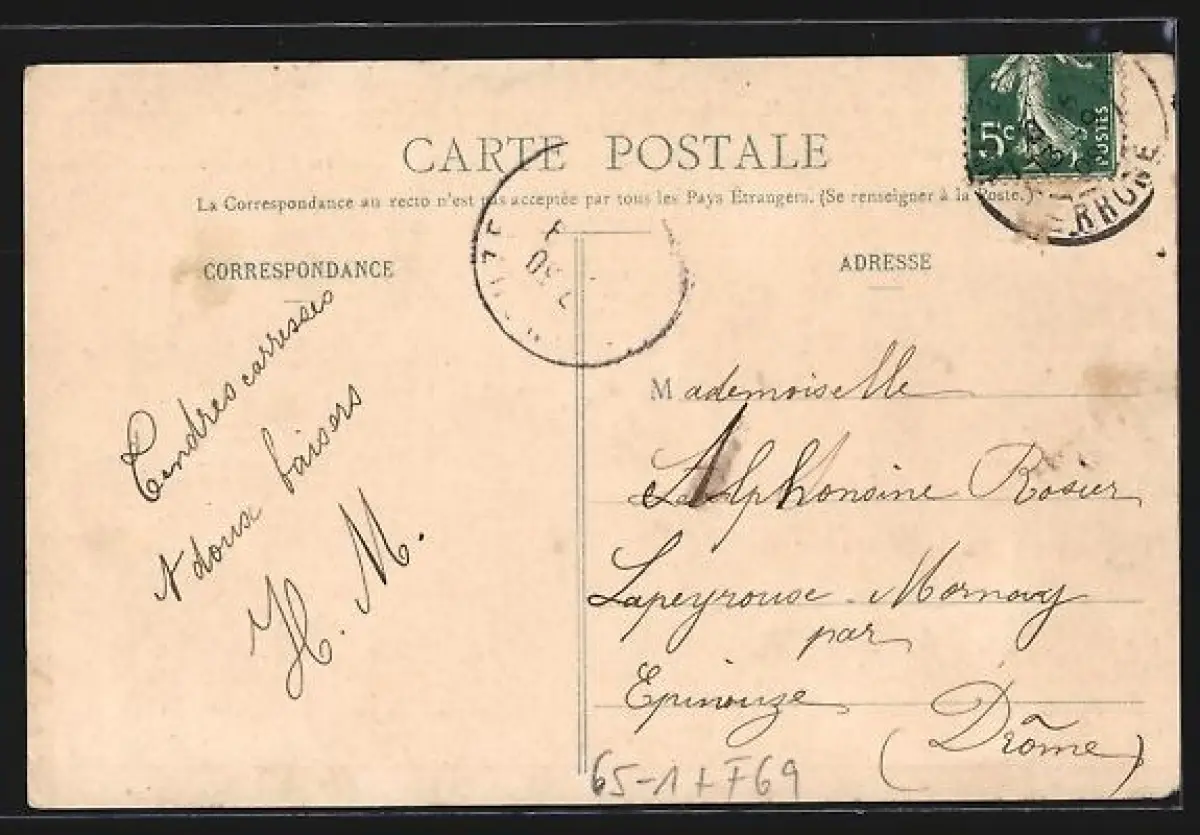 CARTE POSTALE
La Correspondance au recto n'est pas acceptée par tous les Pays Etrangers. (Se renseigner à la Poste.)
CORRESPONDANCE
Tendres carresses
et doux baisers
H. M.
5c
POSTES
RHONE
ADRESSE
Mademoiselle
Alphonsine Rosier
Lapeyrouse-Mornay
par
Epinouze
(Drôme)
65-1 + F69